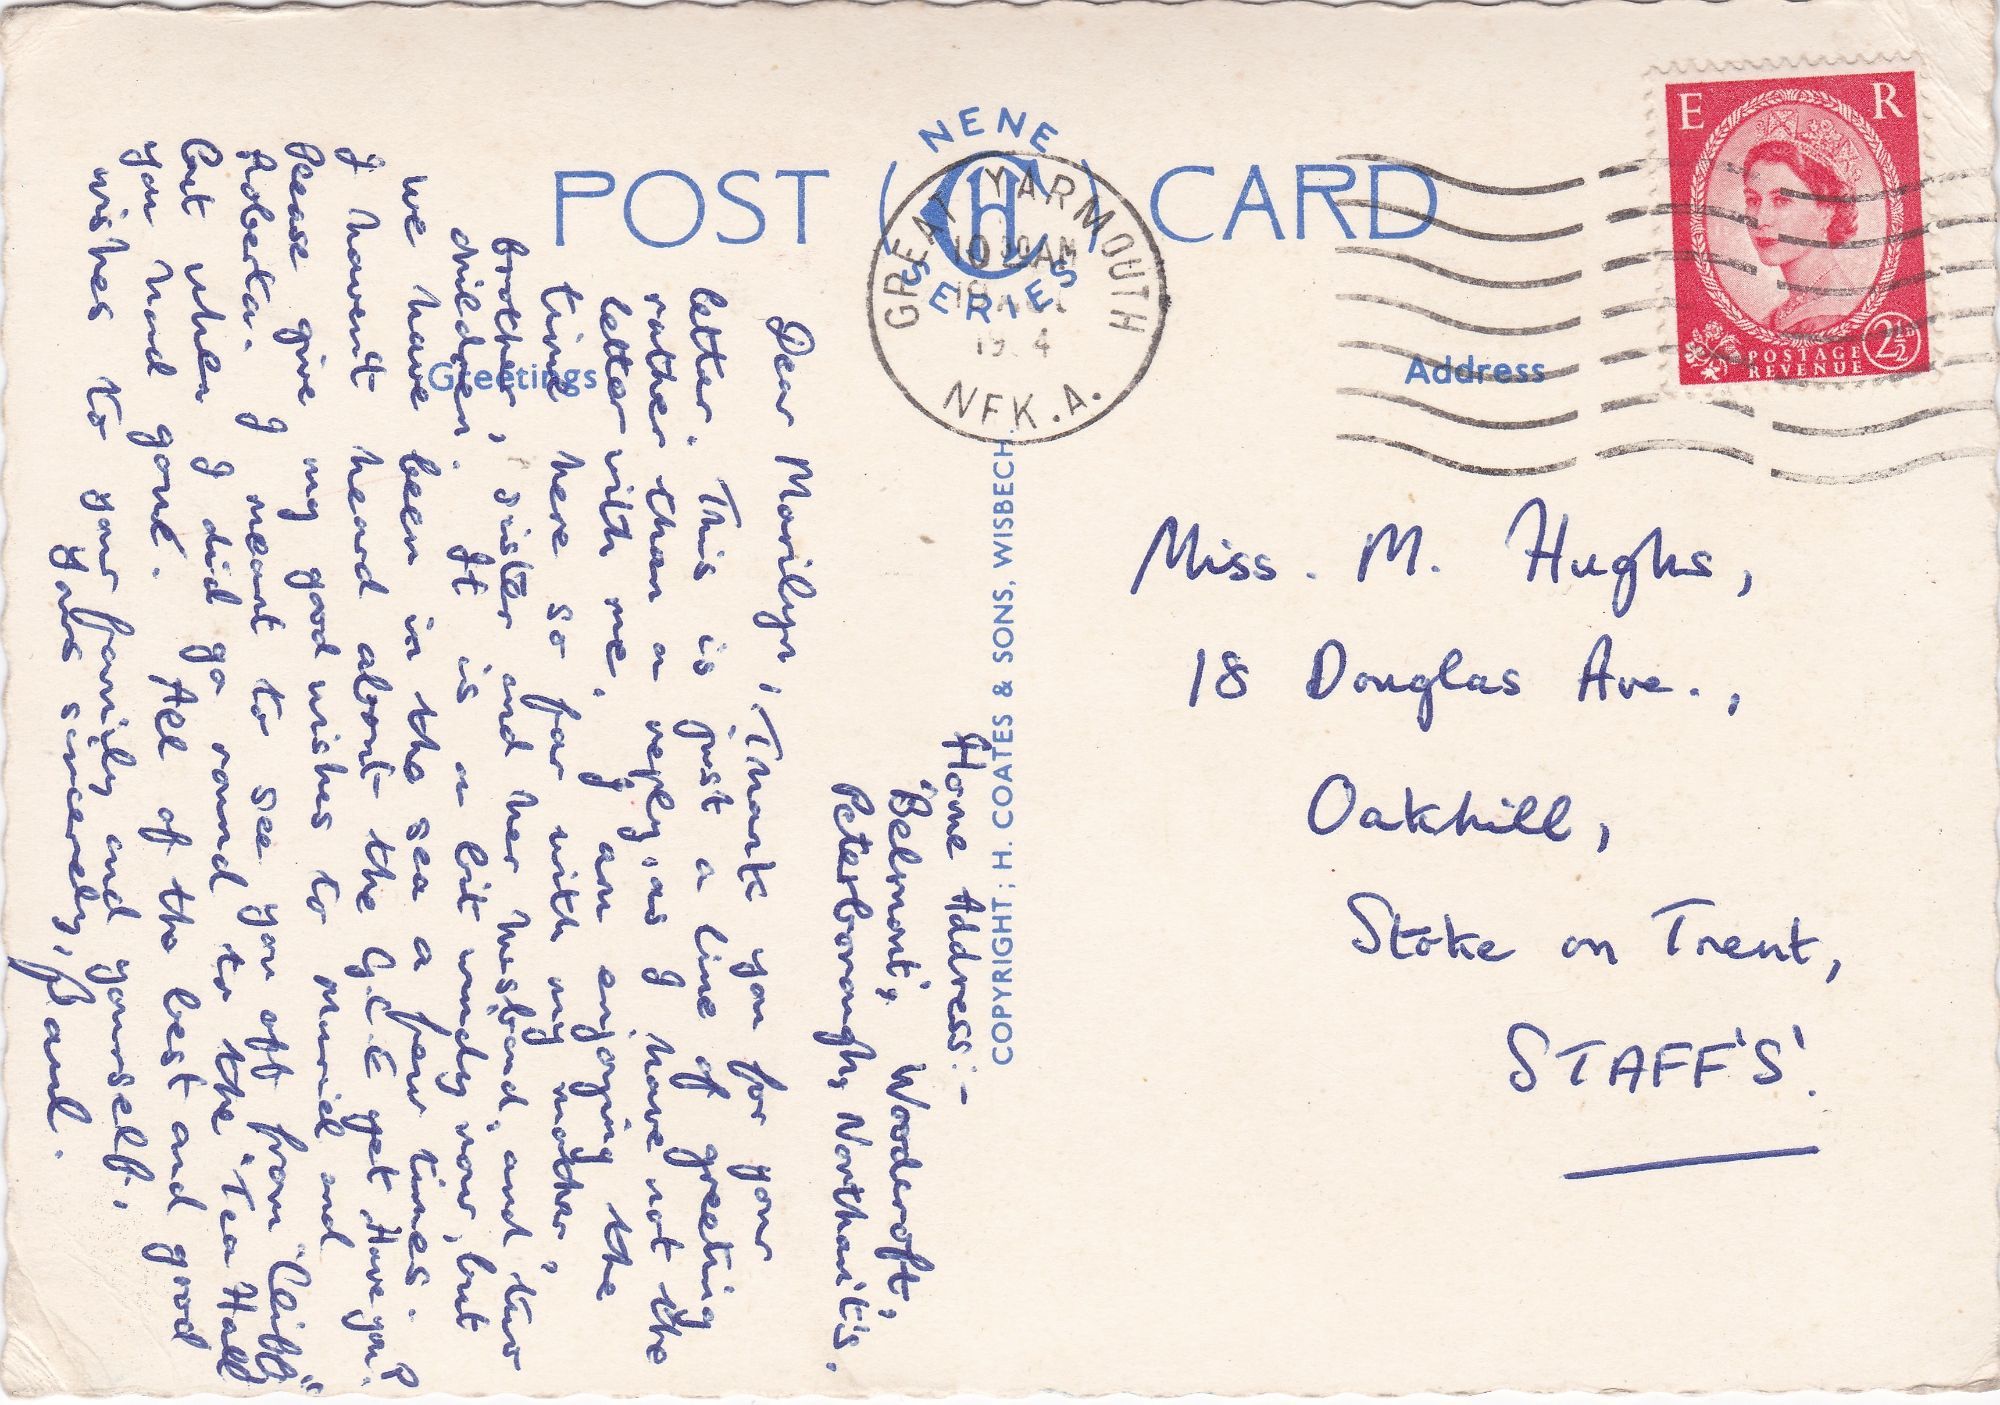 POST CARD
NENE
SERIES
GREAT YARMOUTH
10 30 AM
19 4
NFK. A.
E R
POSTAGE
REVENUE
2½D
Greetings
Address
COPYRIGHT; H. COATES & SONS, WISBECH.
Home Address:-
"Belmont", Woodcroft,
Peterborough, Northant's.
Dear Marilyn, Thank you for your
letter. This is just a line of greeting
rather than a reply, as I have not the
letter with me. I am enjoying the
time here so far with my mother,
brother, sister and her husband, and two
children. It is a bit windy now, but
we have been in the sea a few times.
I havent heard about the G.C.E yet. Have you?
Please give my good wishes to Muriel and
Roberta. I meant to see you off from "Cliff"
but when I did go round to the "Tea Hall"
you had gone. All of the best and good
wishes to your family and yourself,
yours sincerely, Paul.
Miss. M. Hughs,
18 Douglas Ave.,
Oakhill,
Stoke on Trent,
STAFF'S'.